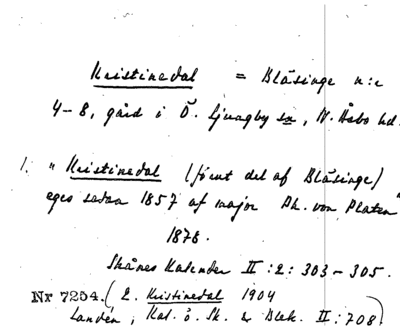 Kristinedal = Blåsinge n:c
4-8, gård i Ö. Ljungby sn, N. Åsbo hd.
1. "Kristinedal (jämt del af Blåsinge)
eges sedan 1857 af major Ph. von Platen"
1878.
Skånes Kalender II:2: 303-305.
Nr 7254. (2. Kristinedal 1904
Landén, Kat. ö. Sk. & Blek. II:708)